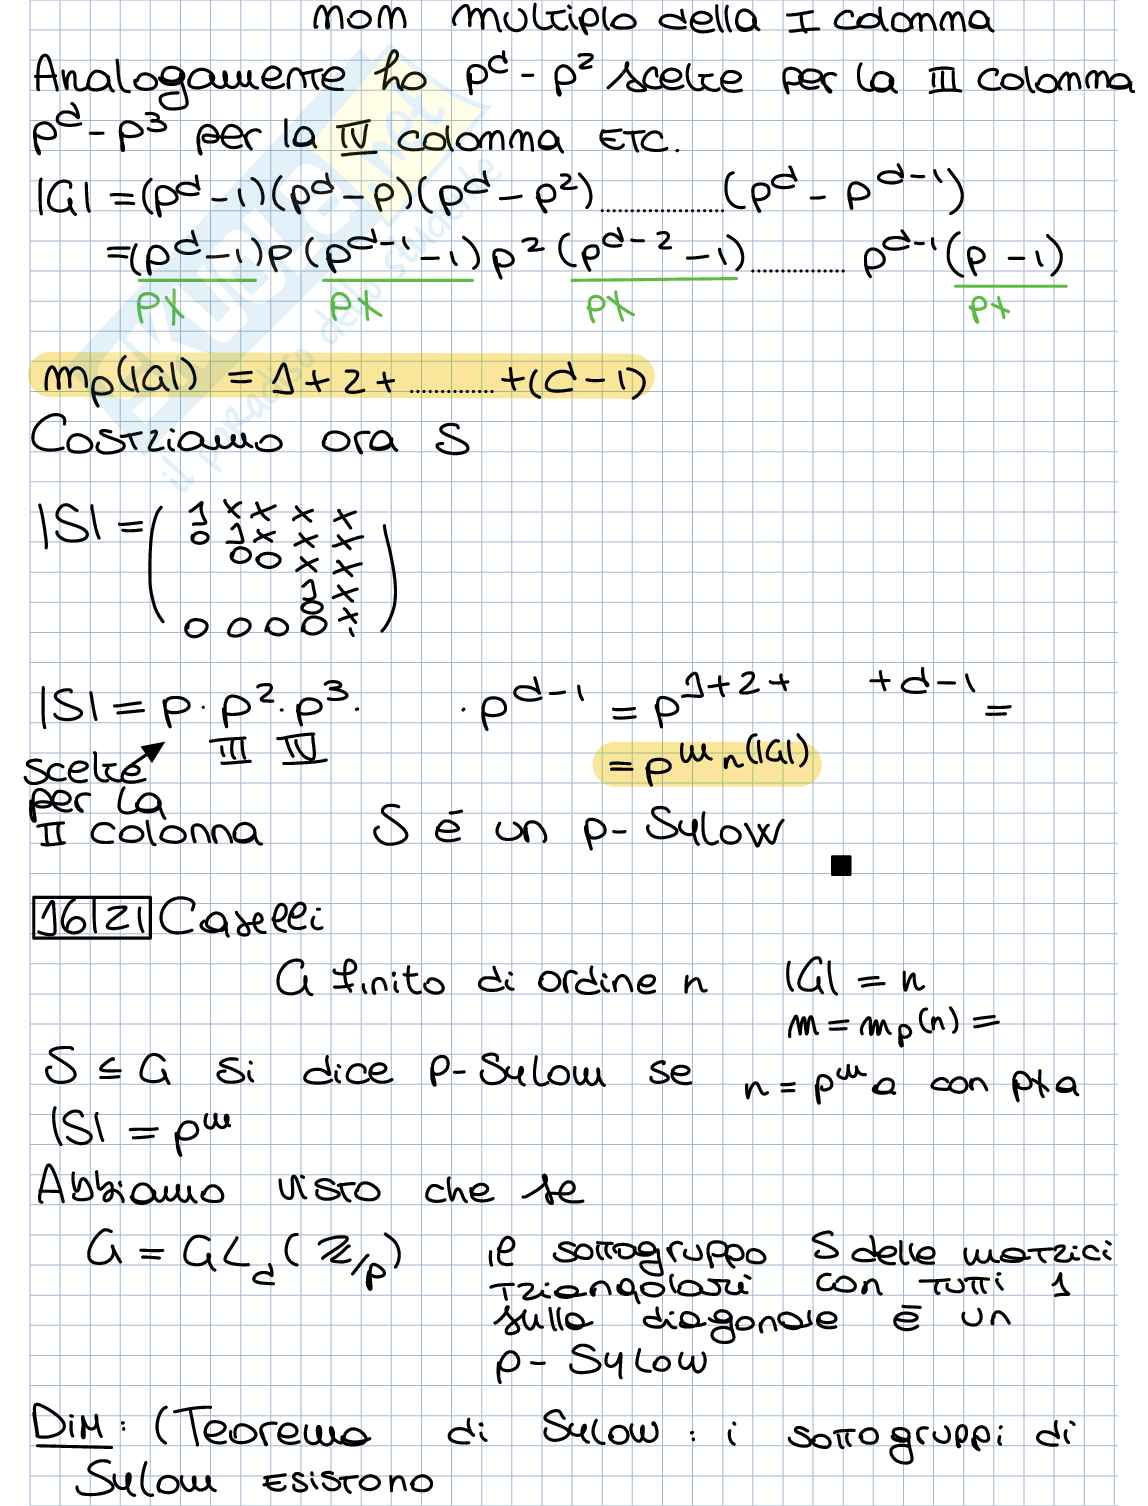 non multiplo della I colonna
Analogamente ho p^d - p^2 scelte per la III colonna
p^d - p^3 per la IV colonna ETC.
|G| = (p^d - 1)(p^d - p)(p^d - p^2) .................... (p^d - p^{d-1})
= (p^d - 1) p (p^{d-1} - 1) p^2 (p^{d-2} - 1) ............... p^{d-1} (p - 1)
p∤ p∤ p∤ p∤
m_p(|G|) = 1 + 2 + ............. + (d - 1)
Costriamo ora S
|S| = ( 1 x x x x
0 1 x x x
0 0 x x
1 x
0 x
0 0 0 0 1 )
|S| = p · p^2 · p^3 · · p^{d-1} = p^{1+2+ +d-1} =
III IV
= p^{m_n(|G|)}
scelte
per la
II colonna S é un p- Sylow
■
16|21 Caselli
G finito di ordine n |G| = n
m = m_p(n) =
S ≤ G si dice p-Sylow se n = p^m a con p∤a
|S| = p^m
Abbiamo visto che se
G = GL_d(ℤ/p) il sottogruppo S delle matrici
triangolari con tutti 1
sulla diagonale é un
p- Sylow
Dim: (Teorema di Sylow: i sottogruppi di
Sylow esistono
il paradiso dello studente